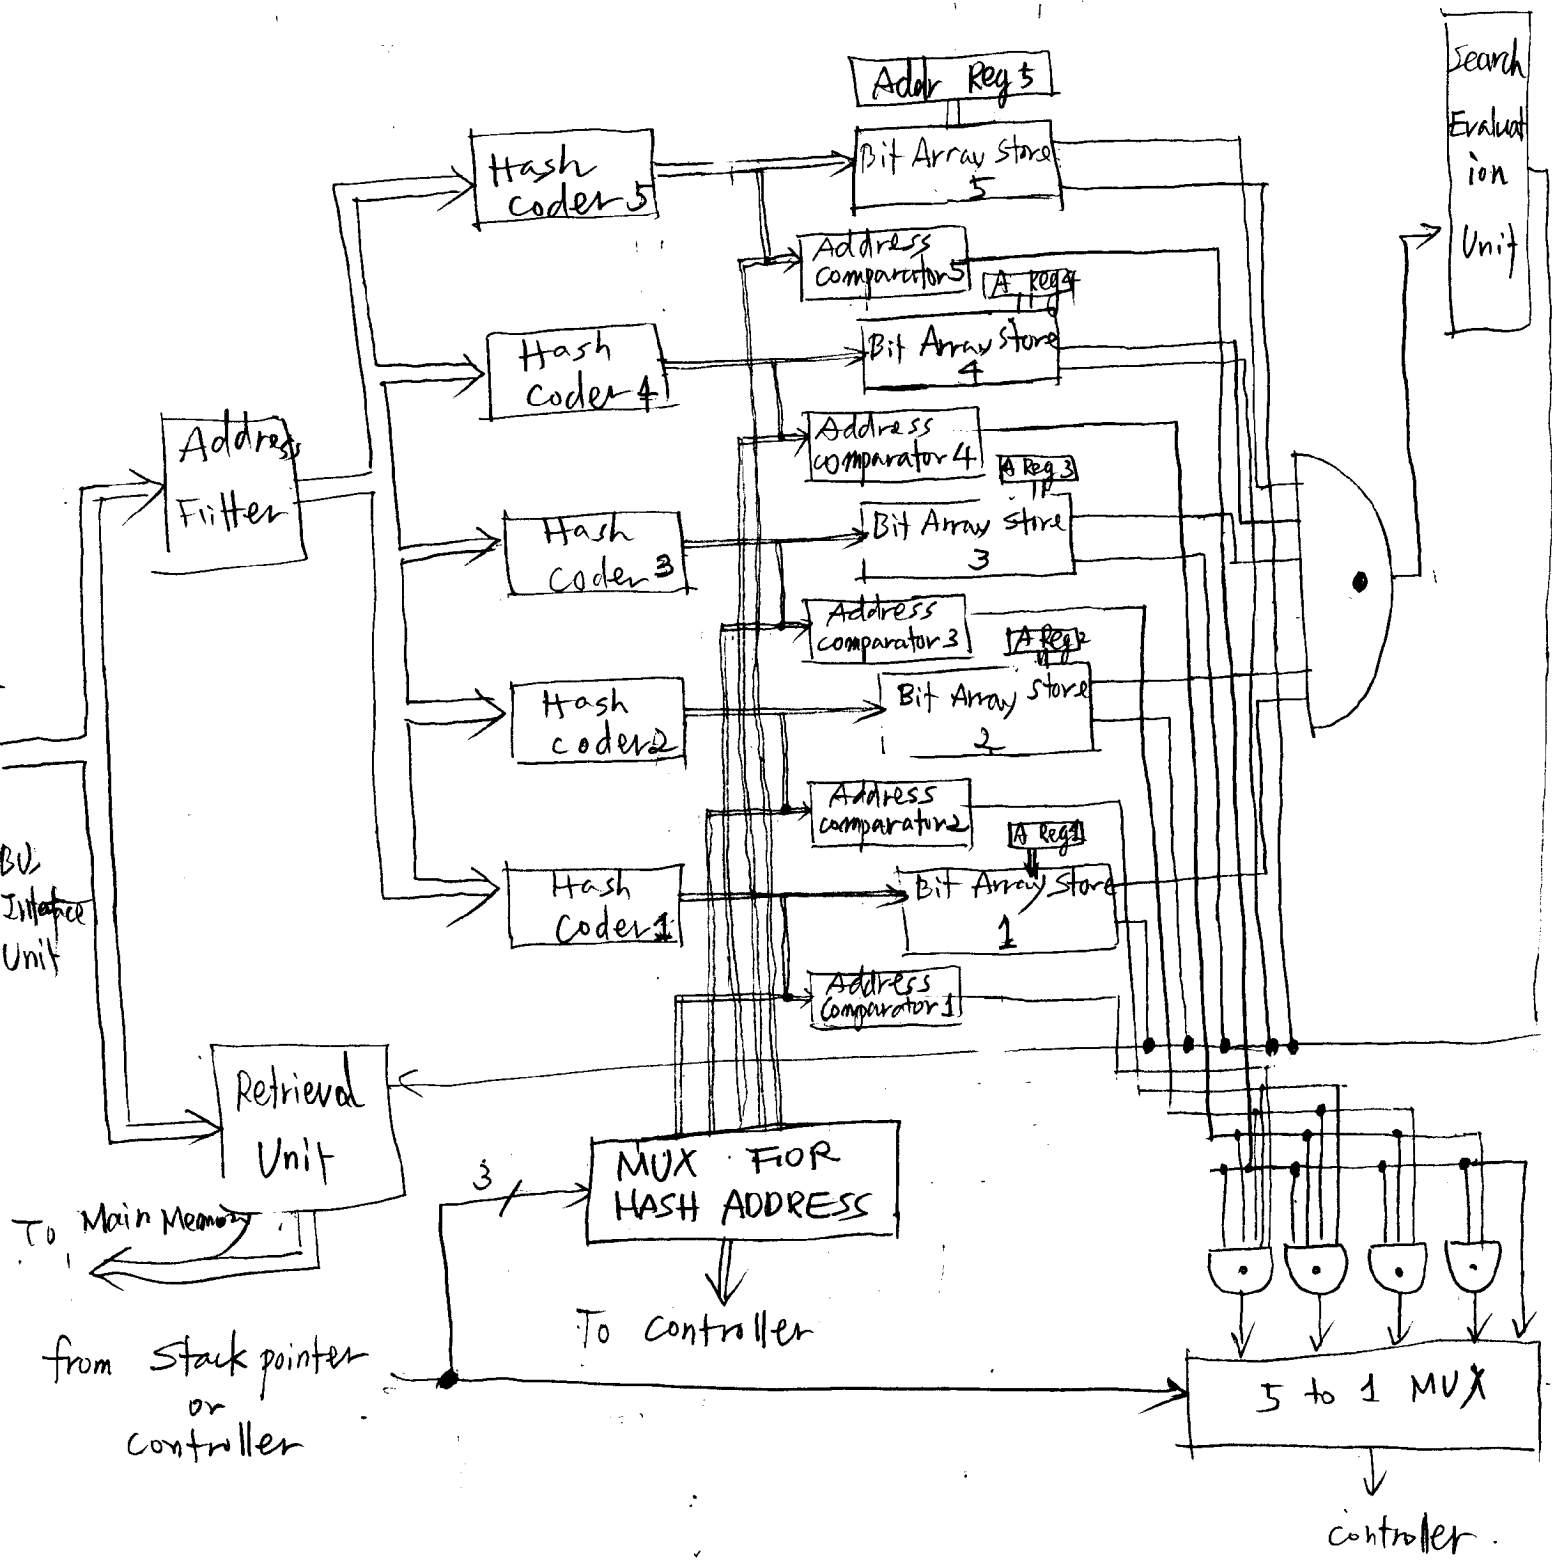 Addr Reg 5
Search
Evaluat
ion
Unit
Hash
Coder 5
Bit Array Store
5
Address
comparator 5
A Reg 4
Hash
Coder 4
Bit Array Store
4
Address
Filter
Address
comparator 4
A Reg 3
Hash
Coder 3
Bit Array Store
3
Address
comparator 3
A Reg 2
Hash
Coder 2
Bit Array Store
2
Address
comparator 2
A Reg 1
Hash
Coder 1
Bit Array Store
1
BUS
Interface
Unit
Address
Comparator 1
Retrieval
Unit
To Main Memory
3
MUX FOR
HASH ADDRESS
To controller
from Stack pointer
or
controller
5 to 1 MUX
controller.